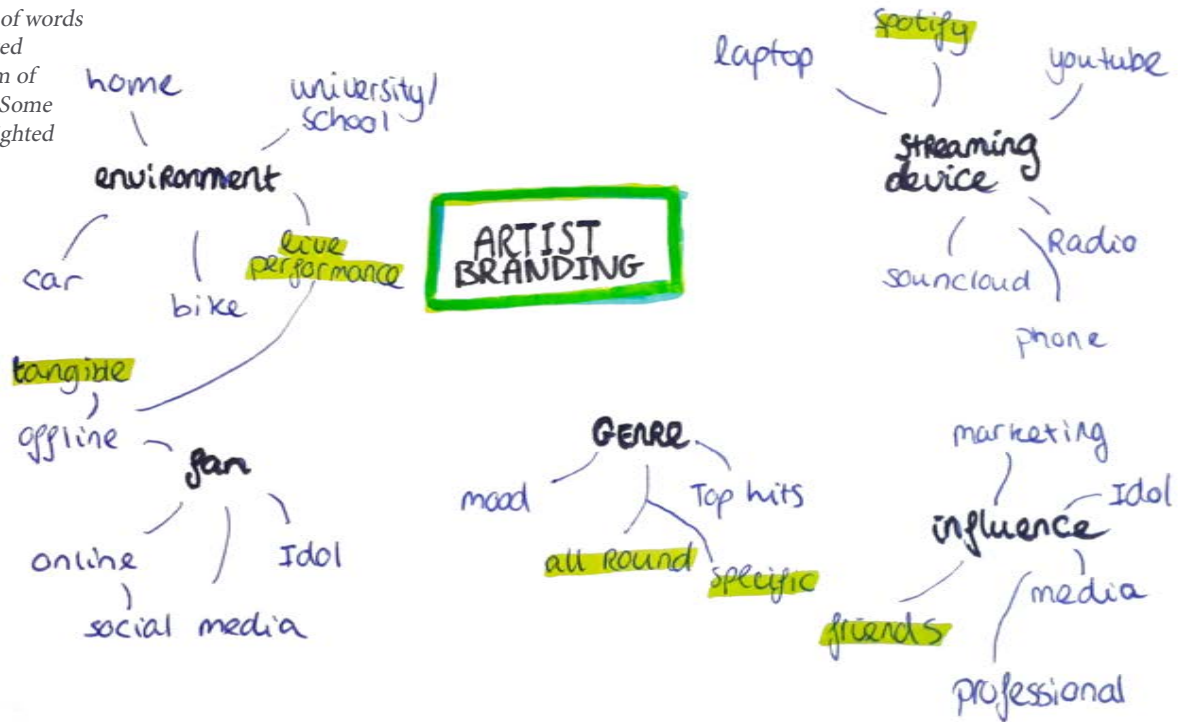 of words
ed
n of
Some
ghted
home
university/
school
environment
car
bike
live
performance
tangible
offline
fan
online
Idol
social media
ARTIST
BRANDING
laptop
spotify
youtube
streaming
device
souncloud
Radio
phone
GENRE
mood
Top hits
all Round
specific
marketing
Idol
influence
media
friends
professional